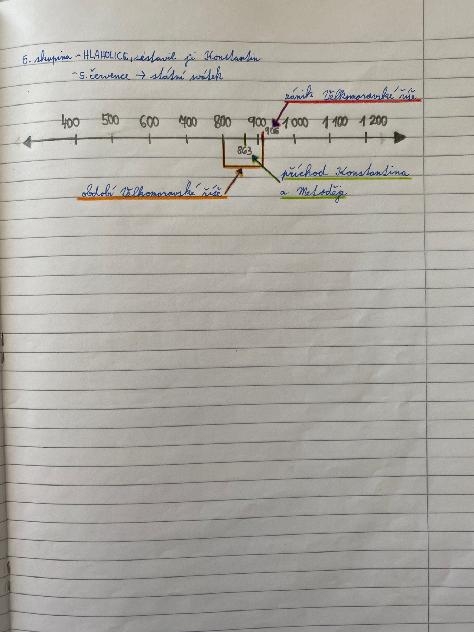 6. skupina - HLAHOLICE, sestavil ji Konstantin
- 5. července → státní svátek
zánik Velkomoravské říše
400 500 600 700 800 900 906 1 000 1 100 1 200
863
příchod Konstantina
a Metoděje
období Velkomoravské říše